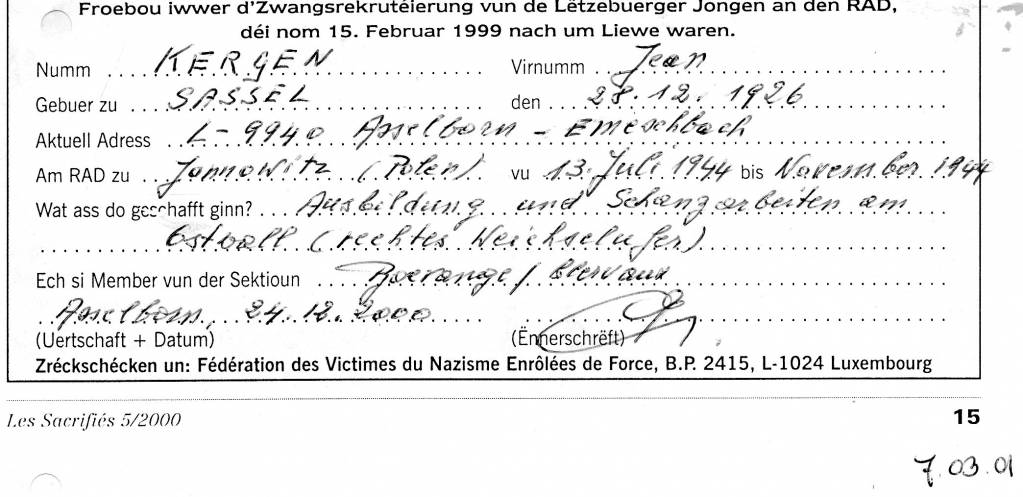 Froebou iwwer d'Zwangsrekrutéierung vun de Lëtzebuerger Jongen an den RAD,
déi nom 15. Februar 1999 nach um Liewe waren.
Numm KERGEN Virnumm Jean
Gebuer zu SASSEL den 28.12.1926
Aktuell Adress L-9940 Asselborn - Emeschbach
Am RAD zu Jannowitz (Polen) vu 13. Juli 1944 bis November 1944
Wat ass do geschafft ginn? Ausbildung und Schanzarbeiten am
Ostwall (rechtes Weichselufer)
Ech si Member vun der Sektioun Boevange / Clervaux
Asselborn, 24.12.2000
(Uertschaft + Datum) (Ënnerschrëft)
Zréckschécken un: Fédération des Victimes du Nazisme Enrôlées de Force, B.P. 2415, L-1024 Luxembourg
Les Sacrifiés 5/2000 15
7.03.01